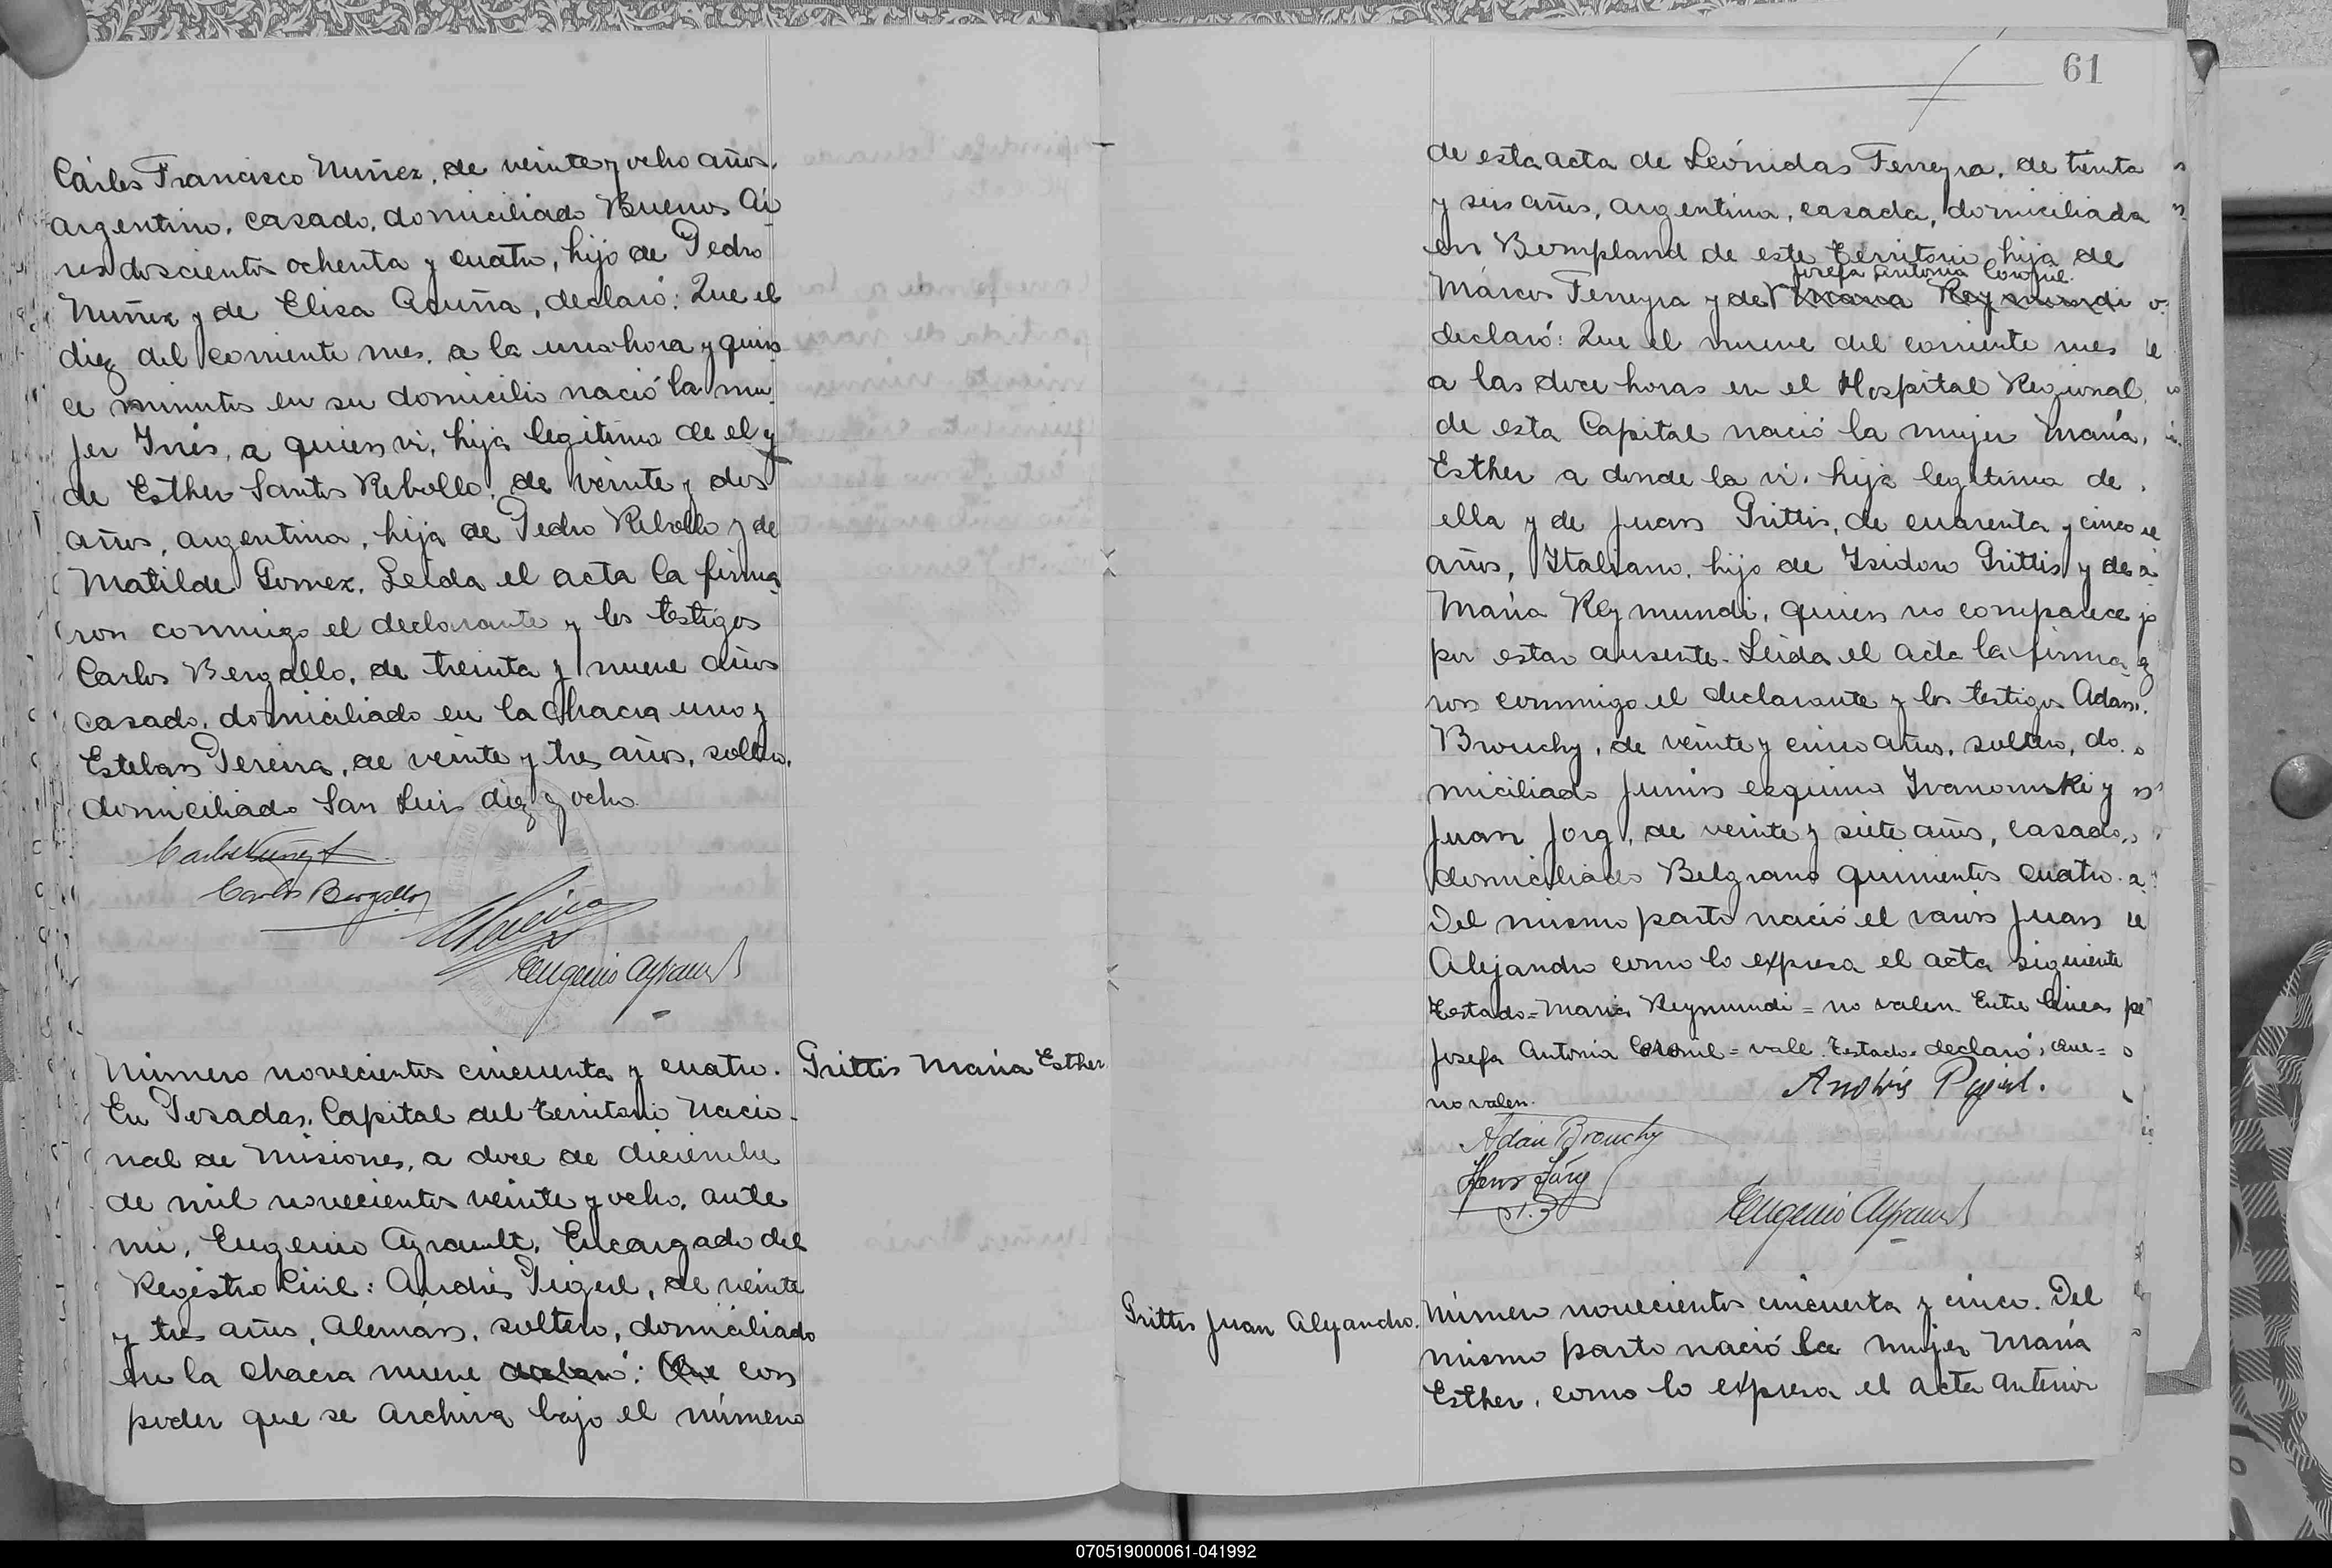 Cárlos Francisco Nuñez, de veinte y ocho años,
argentino, casado, domiciliado Buenos Ai
res doscientos ochenta y cuatro, hijo de Pedro
Nuñez y de Elisa Acuña, declaró: Que el
diez del corriente mes, a la una hora y quin
ce minutos en su domicilio nació la mu
jer Inés, a quien vi, hija legítima de el y
de Esther Santos Rebollo, de veinte y dos
años, argentina, hija de Pedro Rebollo y de
Matilde Gomez. Leída el acta la firma
ron conmigo el declarante y los testigos
Carlos Bergallo, de treinta y nueve años
casado, domiciliado en la chacra uno y
Esteban Pereira, de veinte y tres años, soltero,
domiciliado San Luis diez y ocho.
Carlos Nuñez
Carlos Bergallo
EPereira
Eugenio Ayrault
Número novecientos cincuenta y cuatro.
Grittis María Esther
En Posadas, Capital del Territorio Nacio-
nal de Misiones, a doce de diciembre
de mil novecientos veinte y ocho, ante
mi, Eugenio Ayrault, Encargado del
Registro Civil: Andrés Pigerl, de veinte
y tres años, Alemán, soltero, domiciliado
en la chacra nueve declaró: Que con
poder que se archiva bajo el número
61
de esta acta de Leónidas Ferreyra, de treinta
y seis años, argentina, casada, domiciliada
en Bompland de este Territorio, hija de
Josefa Antonia Coronil
Márcos Ferreyra y de María Reymundi
declaró: Que el nueve del corriente mes
a las doce horas en el Hospital Regional
de esta Capital nació la mujer María,
Esther a donde la vi, hija legítima de
ella y de Juan Grittis, de cuarenta y cinco
años, Italiano, hijo de Isidoro Grittis y de
María Reymundi, quien no comparece
por estar ausente. Leída el acta la firma
ron conmigo el declarante y los testigos Adan
Brouchy, de veinte y cinco años, soltero, do
miciliado Junin esquina Ivanowski y
Juan Jorg, de veinte y siete años, casado,
domiciliado Belgrano quinientos cuatro.
Del mismo parto nació el varón Juan
Alejandro como lo expresa el acta siguiente
Testado=María Reymundi=no valen. Entre lineas
Josefa Antonia Coronil=vale. Testado. declaró, Que=
no valen.
Andrés Pigerl.
Adán Brouchy
Hans Jörg
Eugenio Ayrault
Grittis Juan Alejandro.
Número novecientos cincuenta y cinco. Del
mismo parto nació la mujer María
Esther, como lo expresa el acta anterior
070519000061-041992